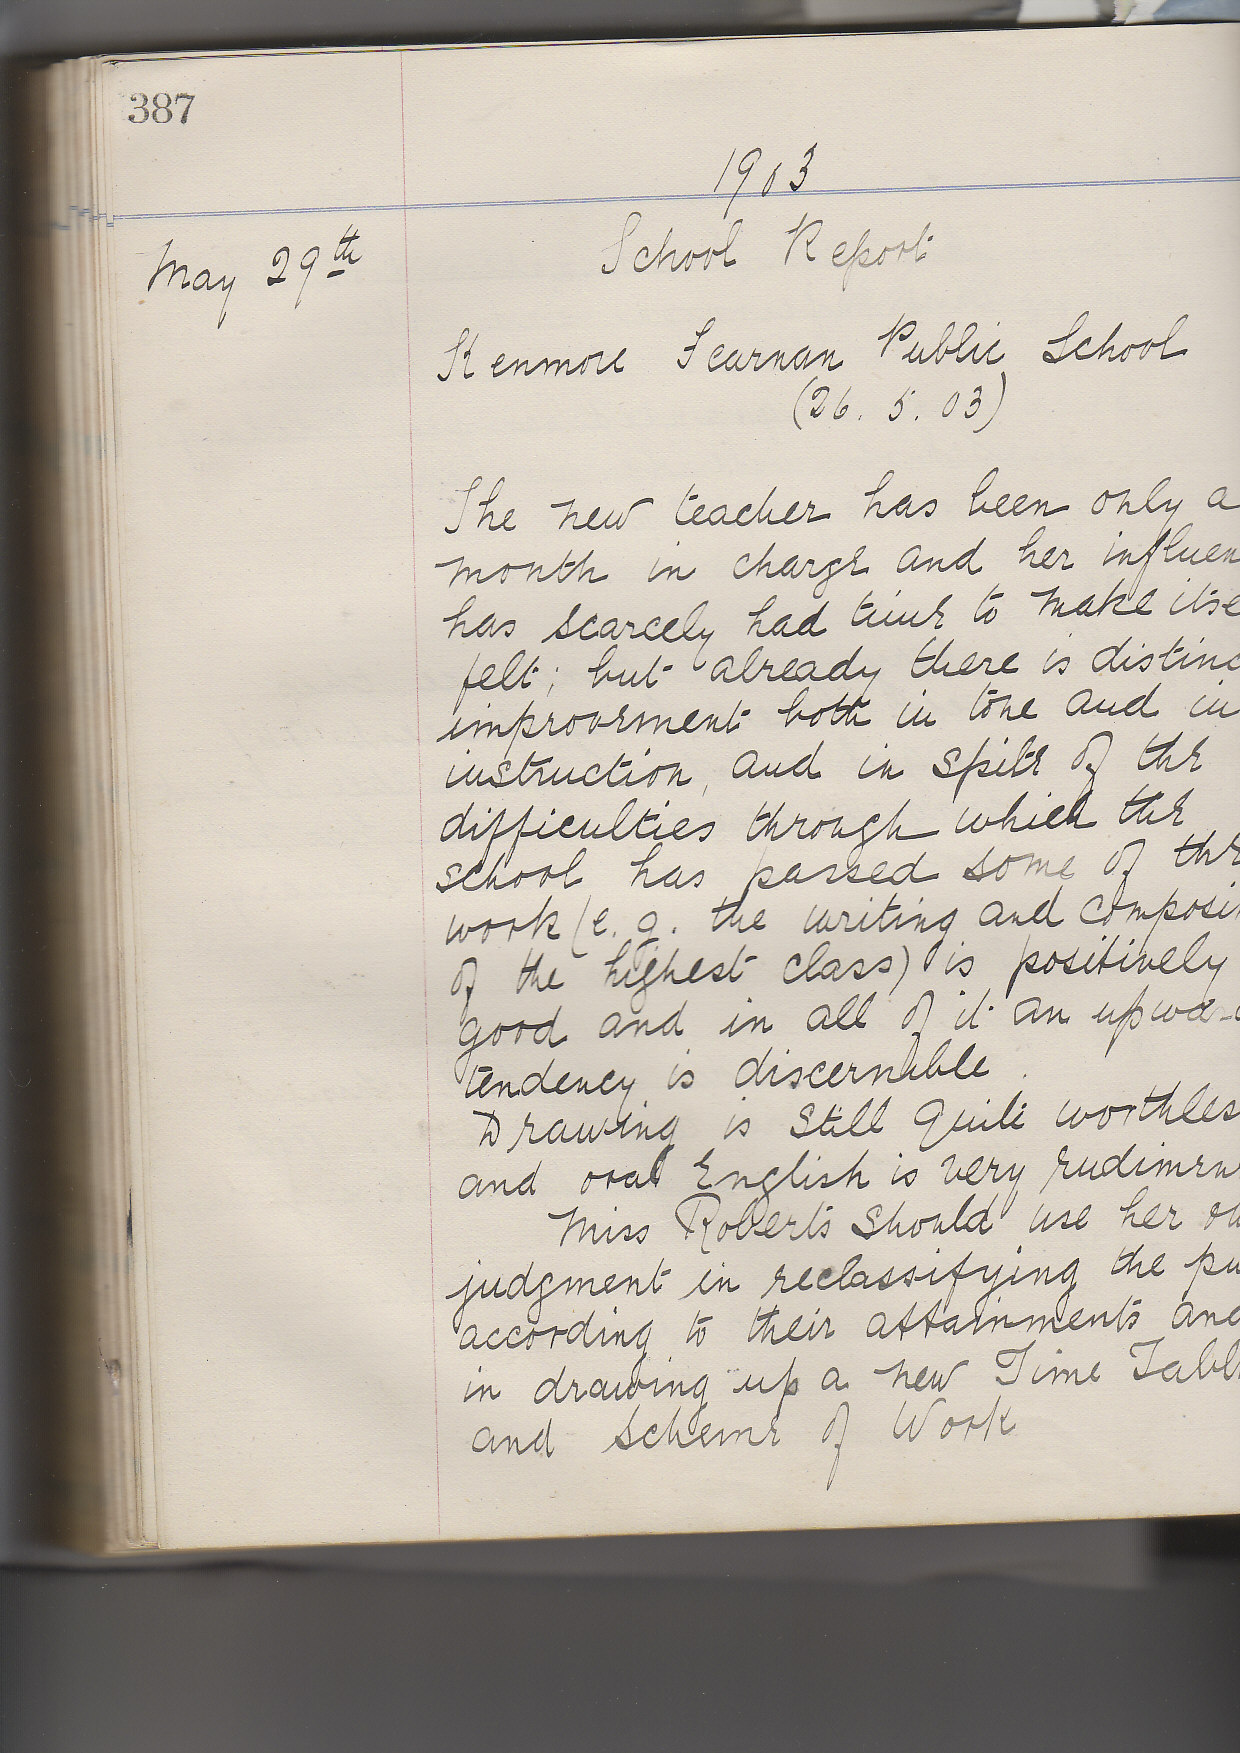 387
1903
May 29th
School Report
Kenmore Fearnan Public School
(26. 5. 03)
The new teacher has been only a
month in charge and her influen
has scarcely had time to make itse
felt; but already there is distinc
improvement both in tone and in
instruction, and in spite of the
difficulties through which the
school has passed some of the
work (e. g. the writing and composi
of the highest class) is positively
good and in all of it an upwa
tendency is discernable.
Drawing is still quite worthles
and oral English is very rudimen
Miss Roberts should use her ow
judgment in reclassifying the pu
according to their attainments and
in drawing up a new Time Tabl
and Scheme of Work